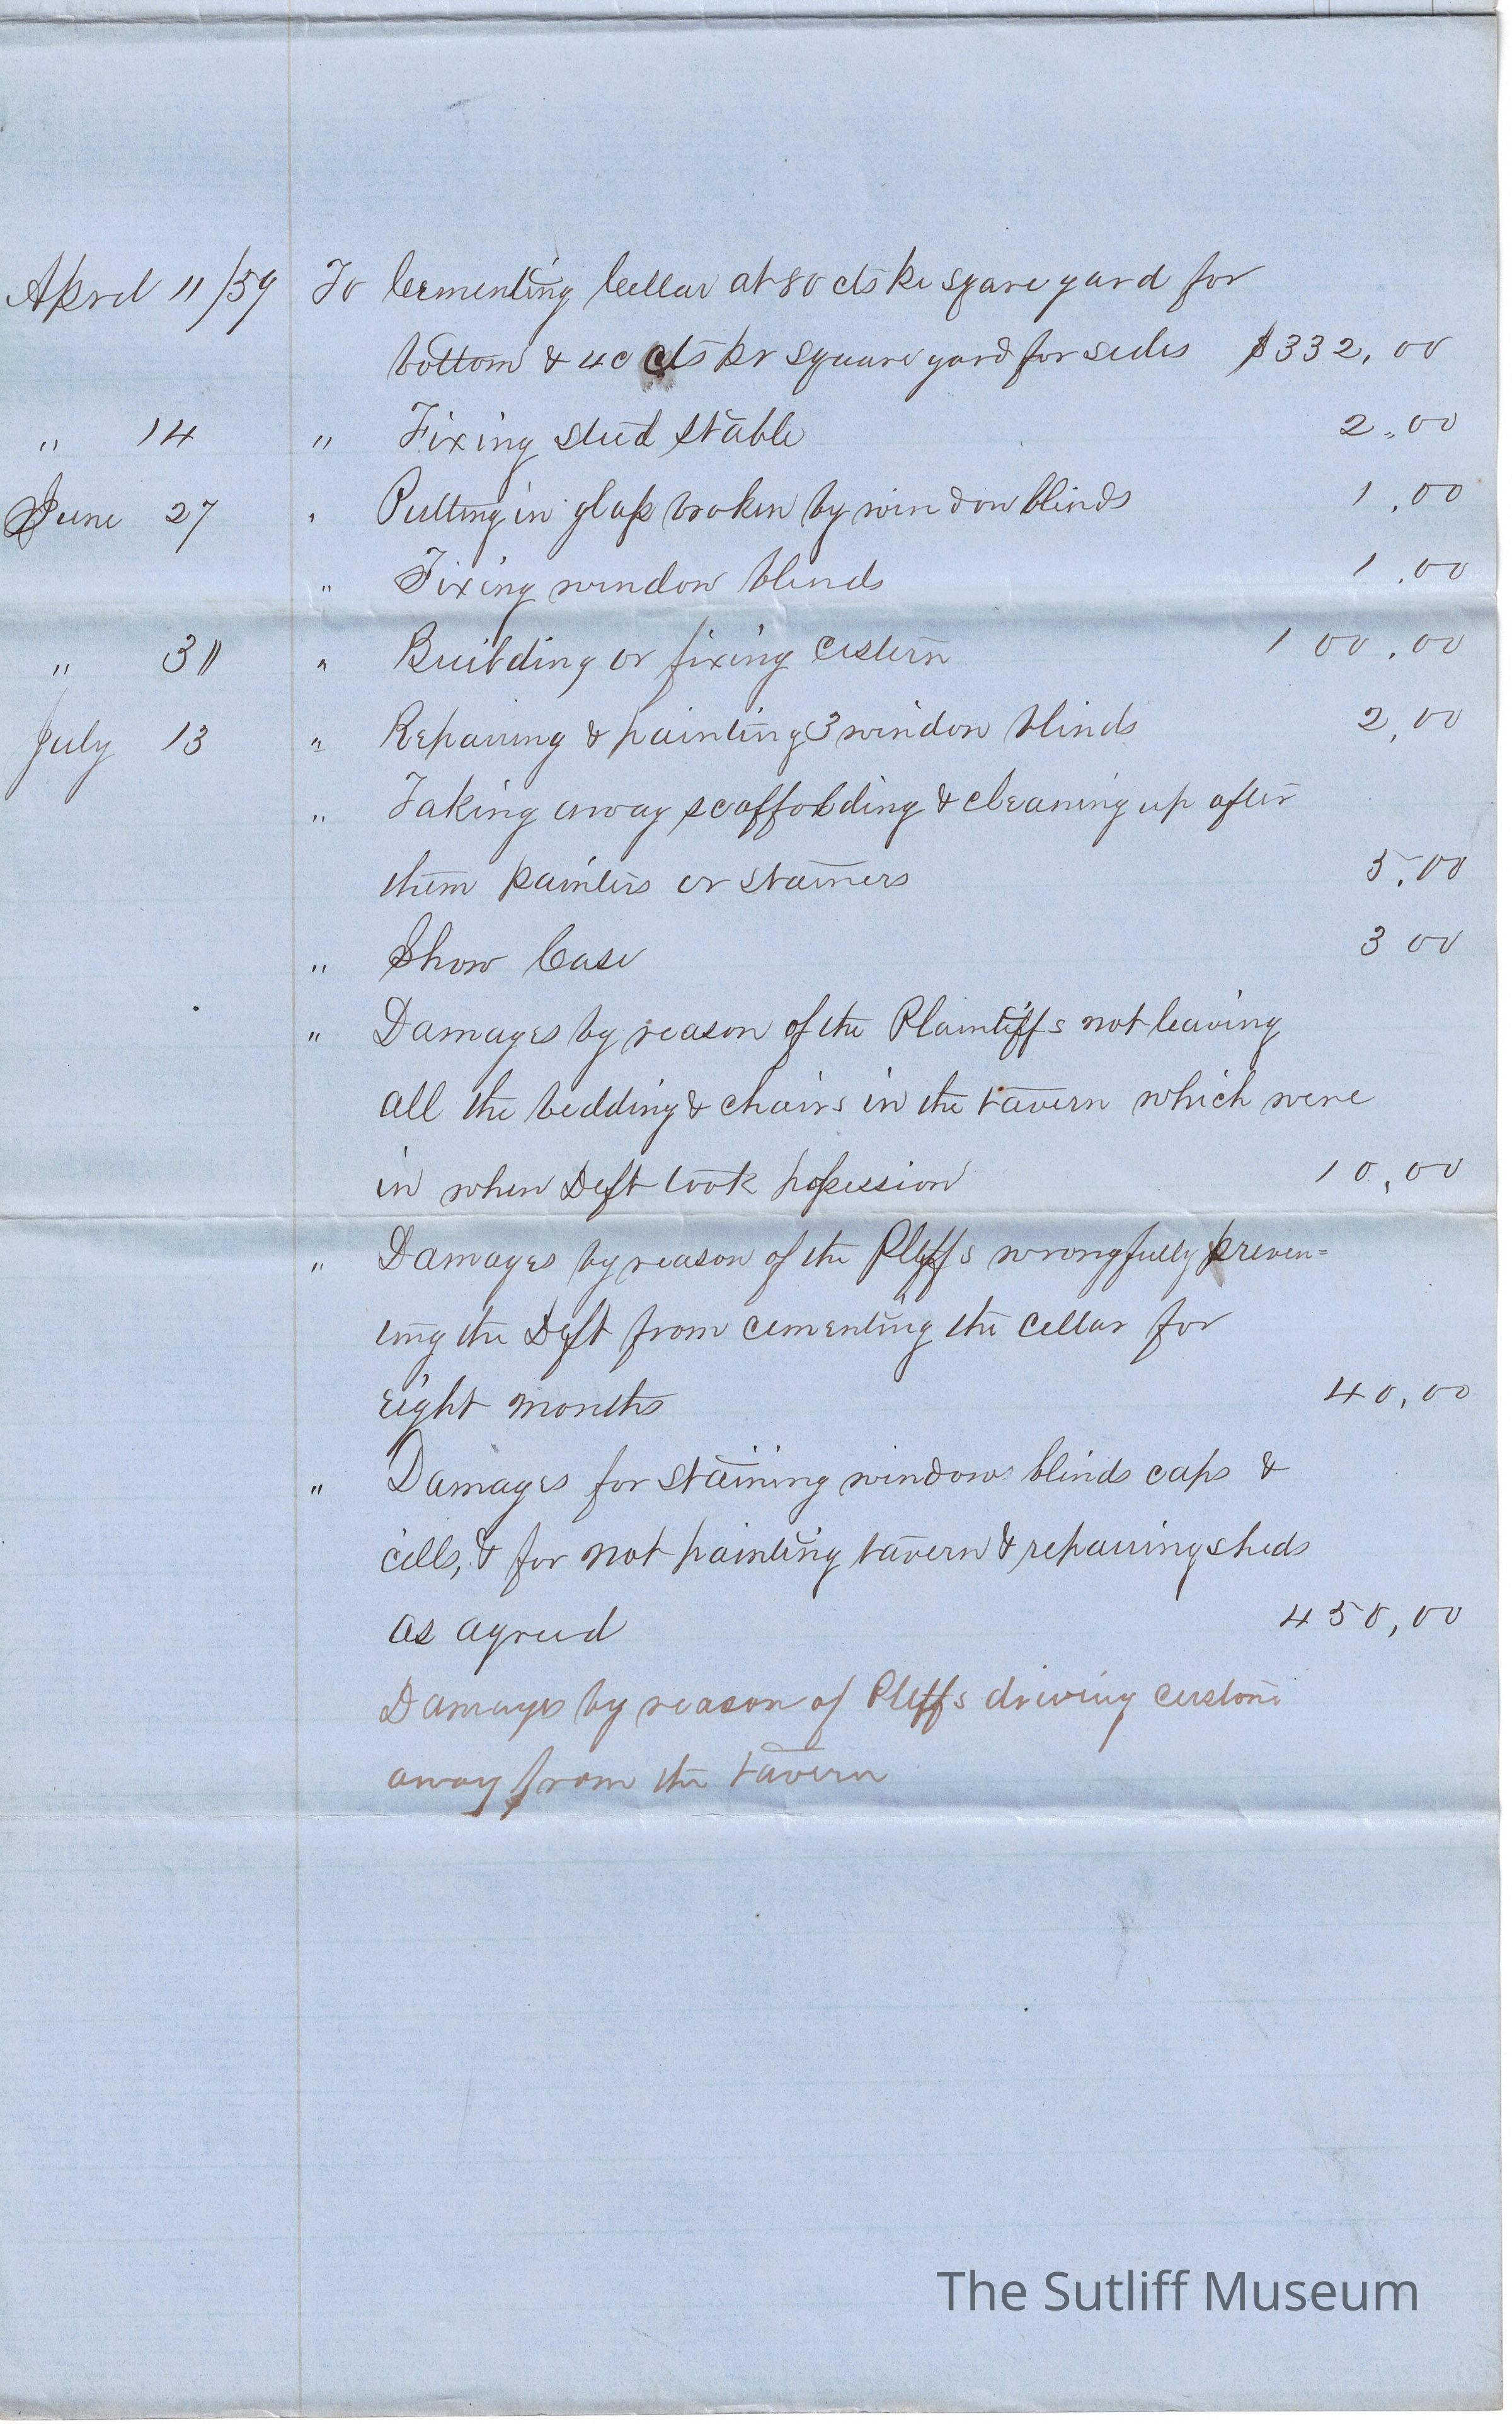 April 11/59 To Cementing Cellar at 80 cts pr sqare yard for
bottom & 40 cts pr square yard for sides $332,00
" 14 " Fixing stud stable 2.00
June 27 " Putting in glass broken by window blinds 1.00
" Fixing window blinds 1.00
" 31 " Building or fixing Cistern 100.00
July 13 " Repairing & painting 3 window blinds 2,00
" Taking away scaffolding & cleaning up after
them painters or stainers 5.00
" Show Case 3 00
" Damages by reason of the Plaintiffs not leaving
all the bedding & chairs in the tavern which were
in when Deft took possession 10,00
" Damages by reason of the Pltffs wrongfully preven=
ting the Deft from cementing the cellar for
eight months 40,00
" Damages for staining windows blinds caps &
cills, & for not painting tavern & repairing sheds
as agreed 450,00
Damages by reason of Pltffs driving custom
away from the tavern
The Sutliff Museum